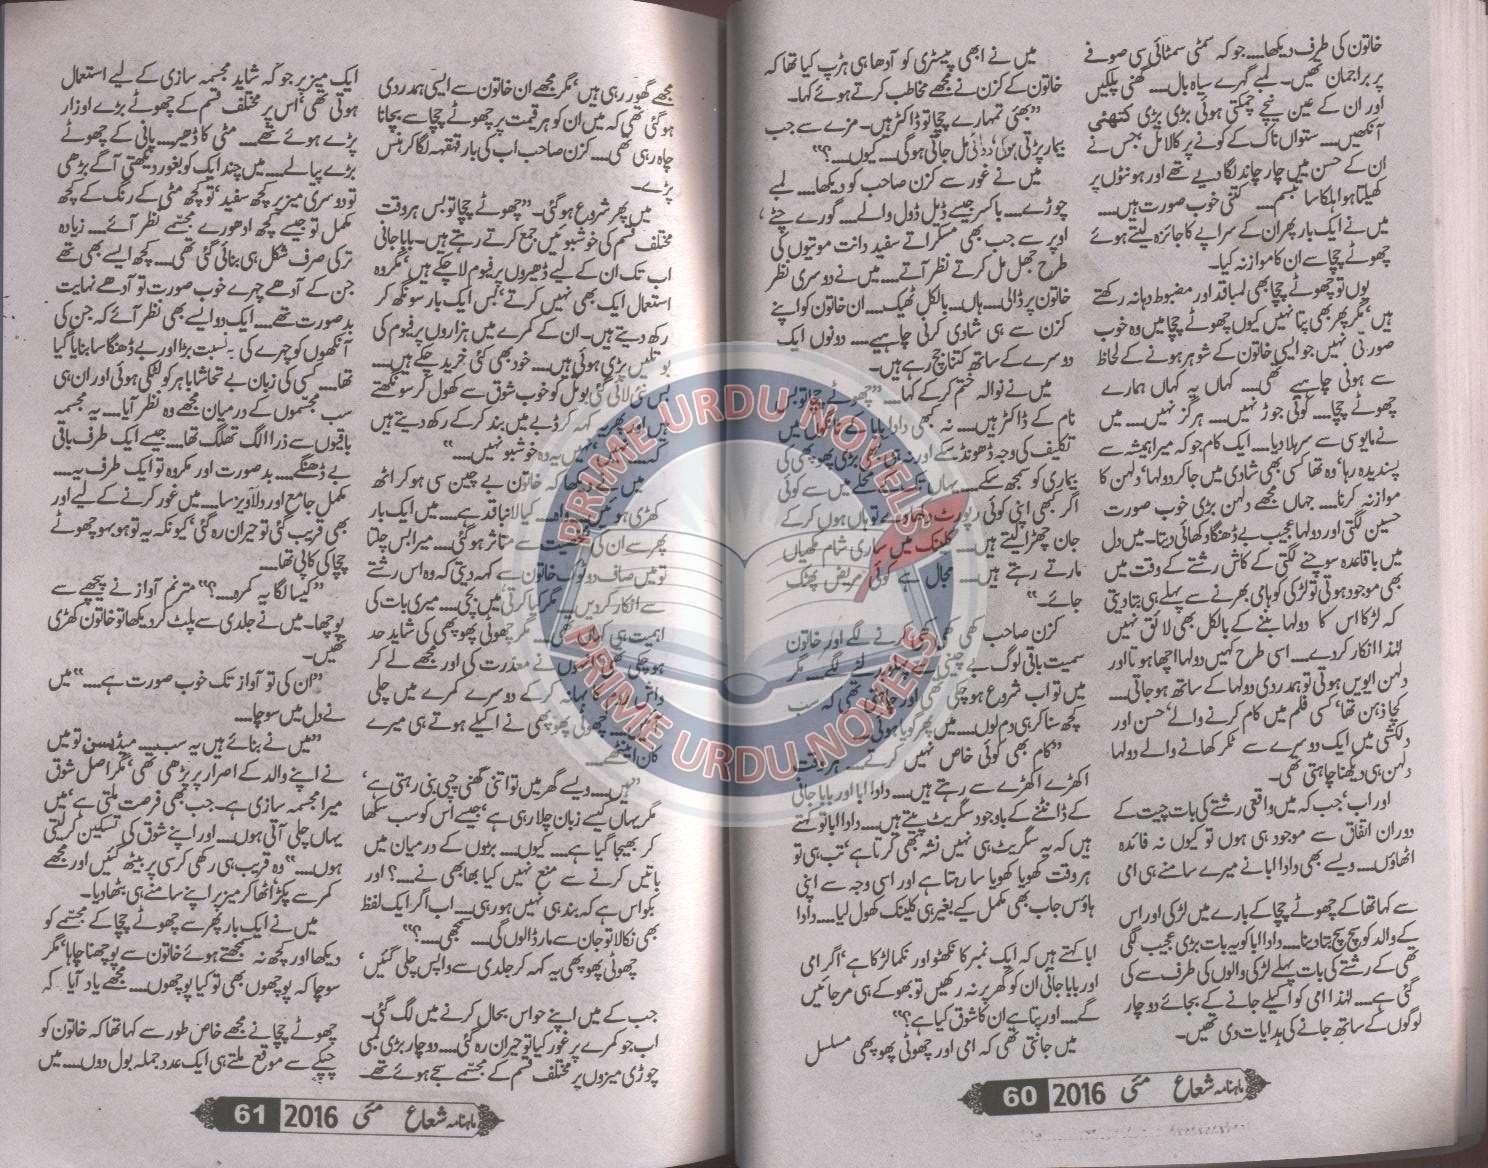 خاتون کی طرف دیکھا.... جو کہ سمٹی سمٹائی سی صوفے
پر براجمان تھیں۔ لمبے گہرے سیاہ بال.... گھنی پلکیں
اور ان کے عین نیچے چمکتی ہوئی بڑی بڑی کتھئی
آنکھیں.... ستواں ناک کے کونے پر کالا تل، جس نے
ان کے حسن میں چار چاند لگا دیے تھے اور ہونٹوں پر
کھیلتا ہوا ہلکا سا تبسم.... کتنی خوب صورت ہیں....
میں نے ایک بار پھر ان کے سراپے کا جائزہ لیتے ہوئے
چھوٹے چچا سے ان کا موازنہ کیا۔
یوں تو چھوٹے چچا بھی لمبا قد اور مضبوط دہانہ رکھتے
ہیں، مگر پھر بھی پتا نہیں کیوں چھوٹے چچا میں وہ خوب
صورتی نہیں جو ایسی خاتون کے شوہر ہونے کے لحاظ
سے ہونی چاہیے تھی.... کہاں یہ کہاں ہمارے
چھوٹے چچا.... کوئی جوڑ نہیں.... ہرگز نہیں.... میں
نے مایوسی سے سر ہلا دیا.... ایک کام جو کہ میرا ہمیشہ سے
پسندیدہ رہا، وہ تھا کسی بھی شادی میں جا کر دولہا، دلہن کا
موازنہ کرنا.... جہاں مجھے دلہن بڑی خوب صورت
حسین لگتی اور دولہا عجیب بے ڈھنگا دکھائی دیتا۔ میں دل
میں باقاعدہ سوچنے لگتی کے کاش رشتے کے وقت میں
بھی موجود ہوتی تو لڑکی کو ہامی بھرنے سے پہلے ہی بتا دیتی
کہ لڑکا اس کا دولہا بننے کے بالکل بھی لائق نہیں
لہٰذا انکار کر دے.... اسی طرح کہیں دولہا اچھا ہوتا اور
دلہن ایویں ہوتی تو ہمدردی دولہا کے ساتھ ہو جاتی....
کچا ذہن تھا، کسی فلم میں کام کرنے والے، حسن اور
دلکشی میں ایک دوسرے سے ٹکر کھانے والے دولہا
دلہن ہی دیکھنا چاہتی تھی۔
اور اب، جب کہ میں واقعی رشتے کی بات چیت کے
دوران اتفاق سے موجود ہی ہوں تو کیوں نہ فائدہ
اٹھاؤں.... ویسے بھی دادا ابا نے میرے سامنے ہی امی
سے کہا تھا کے چھوٹے چچا کے بارے میں لڑکی اور اس
کے والد کو سچ سچ بتا دینا.... دادا ابا کو یہ بات بڑی عجیب لگی
تھی کے رشتے کی بات پہلے لڑکی والوں کی طرف سے کی
گئی ہے.... لہٰذا امی کو اکیلے جانے کے بجائے دو چار
لوگوں کے ساتھ جانے کی ہدایات دی تھیں۔
میں نے ابھی پیسٹری کو آدھا ہی ہڑپ کیا تھا کہ
خاتون کے کزن نے مجھے مخاطب کرتے ہوئے کہا۔
”بھئی تمہارے چچا تو ڈاکٹر ہیں۔ مزے سے جب
بیمار پڑتی ہوگی، دوائی مل جاتی ہوگی.... کیوں....؟“
میں نے غور سے کزن صاحب کو دیکھا.... لمبے
چوڑے.... باکسر جیسے ڈیل ڈول والے.... گورے چٹے،
اوپر سے جب بھی مسکراتے سفید دانت موتیوں کی
طرح جھل مل کرتے نظر آتے.... میں نے دوسری نظر
خاتون پر ڈالی.... ہاں.. بالکل ٹھیک.... ان خاتون کو اپنے
کزن سے ہی شادی کرنی چاہیے.... دونوں ایک
دوسرے کے ساتھ کتنا جچ رہے ہیں۔
میں نے نوالہ ختم کر کے کہا.... ”چھوٹے چچا تو بس
نام کے ڈاکٹر ہیں.... نہ کبھی دادا بابا کے میں
تکلیف کی وجہ ڈھونڈ سکے اور نہ ہی بڑی پھوپھی کی
بیماری کو سمجھ سکے.... یہاں تک محلے میں سے کوئی
اگر کبھی اپنی کوئی رپورٹ دکھاوے تو ہاں ہوں کر کے
جان چھڑا لیتے ہیں.... کلینک میں ساری شام مکھیاں
مارتے رہتے ہیں.... مجال ہے کوئی مریض پھٹک
جائے۔“
کزن صاحب کھی کھی کھی کرنے لگے اور خاتون
سمیت باقی لوگ بے چینی سے لگے.... مگر
میں تو اب شروع ہو چکی تھی اور چاہتی تھی کہ سب
کچھ سنا کر ہی دم لوں.... میں پھر گویا ہوئی....
”کام بھی کوئی خاص نہیں کرتے.... ہر وقت
اکھڑے اکھڑے سے رہتے ہیں.... دادا ابا اور بابا جانی
کے ڈانٹنے کے باوجود سگریٹ پیتے ہیں.... دادا ابا تو کہتے
ہیں کہ یہ سگریٹ ہی نہیں نشہ بھی کرتا ہے، تب ہی تو
ہر وقت کھویا کھویا سا رہتا ہے اور اسی وجہ سے اپنی
ہاؤس جاب بھی مکمل کیے بغیر ہی کلینک کھول لیا.... دادا
ابا کہتے ہیں کہ ایک نمبر کا نکھٹو اور نکما لڑکا ہے، اگر امی
اور بابا جانی ان کو گھر پر نہ رکھیں تو بھوکے ہی مر جائیں
گے.... اور پتا ہے ان کا شوق کیا ہے؟“
میں جانتی تھی کہ امی اور چھوٹی پھوپھی مسلسل
ماہنامہ شعاع مئی 2016 60
مجھے گھور رہی ہیں، مگر مجھے ان خاتون سے ایسی ہمدردی
ہو گئی تھی کہ میں ان کو ہر قیمت پر چھوٹے چچا سے بچانا
چاہ رہی تھی.... کزن صاحب اب کی بار قہقہہ لگا کر ہنس
پڑے۔
میں پھر شروع ہو گئی۔ ”چھوٹے چچا تو بس ہر وقت
مختلف قسم کی خوشبوئیں جمع کرتے رہتے ہیں۔ بابا جانی
اب تک ان کے لیے ڈھیروں پرفیوم لا چکے ہیں، مگر وہ
استعمال ایک بھی نہیں کرتے، بس ایک بار سونگھ کر
رکھ دیتے ہیں۔ ان کے کمرے میں ہزاروں پرفیوم کی
بوتلیں پڑی ہوئی ہیں.... خود بھی کئی خرید چکے ہیں....
بس نئی لائی گئی بوتل کو خوب شوق سے کھول کر سونگھتے
ہیں اور پھر یہ کہہ کر ڈبے میں بند کر کے رکھ دیتے ہیں
کہ.... نہیں یہ وہ خوشبو نہیں....“
میں نے دیکھا کہ خاتون بے چین سی ہو کر اٹھ
کھڑی ہوئیں.... واہ.... کیا لانبا قد ہے.... میں ایک بار
پھر سے ان کی شخصیت سے متاثر ہو گئی.... میرا بس چلتا
تو میں صاف دو ٹوک خاتون سے کہہ دیتی کہ وہ اس رشتے
سے انکار کر دیں.... مگر کیا کرتی میں بچی.... میری بات کی
اہمیت ہی کہاں تھی.... مگر چھوٹی پھوپھی کی شاید حد
ہو چکی تھی نے معذرت کی اور مجھے لے کر
واش روم کا بہانہ کر کے دوسرے کمرے میں چلی
چھوٹی پھوپھی نے اکیلے ہوتے ہی میرے
کان اینٹھے۔
”ہیں.... ویسے گھر میں تو اتنی گھنی چپی بنی رہتی ہے،
مگر یہاں کیسے زبان چلا رہی ہے، جیسے اس کو سب سکھا
کر بھیجا گیا ہے.... کیوں.... بڑوں کے درمیان میں
باتیں کرنے سے منع نہیں کیا بھابھی نے....؟ اور
بکواس ہے کہ بند ہی نہیں ہو رہی.... اب اگر ایک لفظ
بھی نکالا تو جان سے مار ڈالوں گی.... سمجھی....؟“
چھوٹی پھوپھی یہ کہہ کر جلدی سے واپس چلی گئیں،
جب کے میں اپنے حواس بحال کرنے میں لگ گئی۔
اب جو کمرے پر غور کیا تو حیران رہ گئی.... دو چار بڑی لمبی
چوڑی میزوں پر مختلف قسم کے مجسمے سجے ہوئے تھے۔
ایک میز پر جو کہ شاید مجسمہ سازی کے لیے استعمال
ہوتی تھی، اس پر مختلف قسم کے چھوٹے بڑے اوزار
پڑے ہوئے تھے.... مٹی کا ڈھیر.... پانی کے چھوٹے
بڑے پیالے.... میں چند ایک کو بغور دیکھتی آگے بڑھی
تو دوسری میز پر کچھ سفید، تو کچھ مٹی کے رنگ کے کچھ
مکمل تو جیسے کچھ ادھورے مجسمے نظر آئے.... زیادہ
تر کی صرف شکل ہی بنائی گئی تھی.... کچھ ایسے بھی تھے
جن کے آدھے چہرے خوب صورت تو آدھے نہایت
بدصورت تھے.... ایک دو ایسے بھی نظر آئے کہ جن کی
آنکھوں کو چہرے کی بہ نسبت بڑا اور بے ڈھنگا سا بنایا گیا
تھا.... کسی کی زبان بے تحاشا باہر کو لٹکی ہوئی اور ان ہی
سب مجسموں کے درمیان مجھے وہ نظر آیا.... یہ مجسمہ
باقیوں سے ذرا الگ تھلگ تھا.... جیسے ایک طرف باقی
بے ڈھنگے.... بدصورت اور مکروہ تو ایک طرف یہ....
مکمل جامع اور دلآویز سا.... میں غور کرنے کے لیے اور
بھی قریب گئی تو حیران رہ گئی، کیونکہ یہ تو ہو بہو چھوٹے
چچا کی کاپی تھا....
”کیسا لگا یہ کمرہ....؟“ مترنم آواز نے پیچھے سے
پوچھا۔ میں نے جلدی سے پلٹ کر دیکھا تو خاتون کھڑی
تھیں۔
”ان کی تو آواز تک خوب صورت ہے....“ میں
نے دل میں سوچا....
”میں نے بنائے ہیں یہ سب.... میڈیسن تو میں
نے اپنے والد کے اصرار پر پڑھی تھی، مگر اصل شوق
میرا مجسمہ سازی ہے۔ جب بھی فرصت ملتی ہے، میں
یہاں چلی آتی ہوں.... اور اپنے شوق کی تسکین کر لیتی
ہوں....“ وہ قریب ہی رکھی کرسی پر بیٹھ گئیں اور مجھے
کمر سے پکڑ اٹھا کر میز پر اپنے سامنے ہی بٹھا دیا۔
میں نے ایک بار پھر سے چھوٹے چچا کے مجسمے کو
دیکھا اور کچھ نہ سمجھتے ہوئے خاتون سے پوچھنا چاہا، مگر
سوچا کہ پوچھوں بھی تو کیا پوچھوں.... مجھے یاد آیا کہ
چھوٹے چچا نے مجھے خاص طور سے کہا تھا کہ خاتون کو
چپکے سے موقع ملتے ہی ایک عدد جملہ بول دوں.... میں
ماہنامہ شعاع مئی 2016 61
PRIME URDU NOVELS
PRIME URDU NOVELS